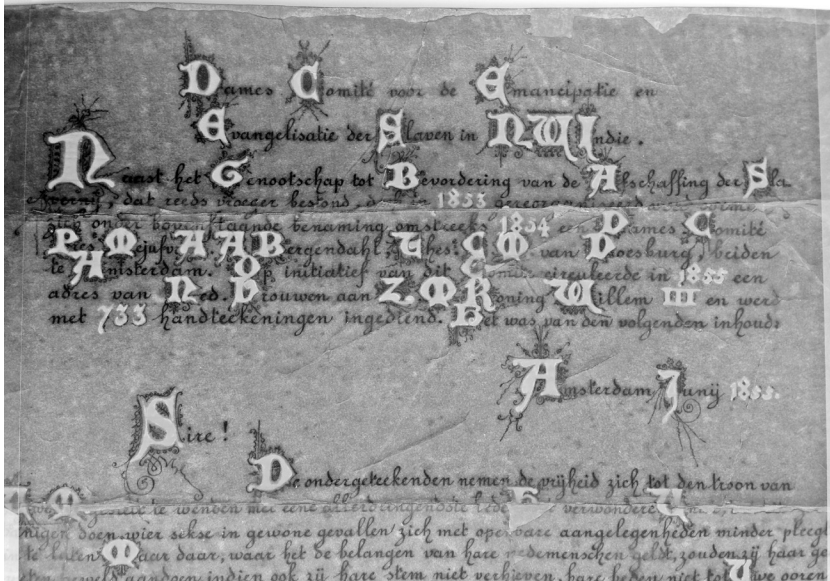 Dames Comité voor de Emancipatie en
Evangelisatie der Slaven in N W Indie.
Naast het Genootschap tot Bevordering van de Afschaffing der Sla
vernij, dat reeds vroeger bestond, 1853
onder bovenstaande benaming omstreeks 1854 een Dames Comité
Mejufvr A A Bergendahl, C M van Doesburg, beiden
te Amsterdam. Op initiatief van dit Comité circuleerde in 1855 een
adres van Ned. Vrouwen aan Z. M. Koning Willem III en werd
met 733 handteekeningen ingediend. Het was van den volgenden inhoud:
Amsterdam, Junij 1855.
Sire!
De ondergeteekenden nemen de vrijheid zich tot den troon van
te wenden met eene
doen, wier sekse in gewone gevallen zich met openbare aangelegenheden minder pleegt
te laten. Maar daar, waar het de belangen van hare medemenschen geldt, zouden zij haar
geweld aandoen indien ook zij hare stem niet verhieven, hare beden niet tot Uwe ooren